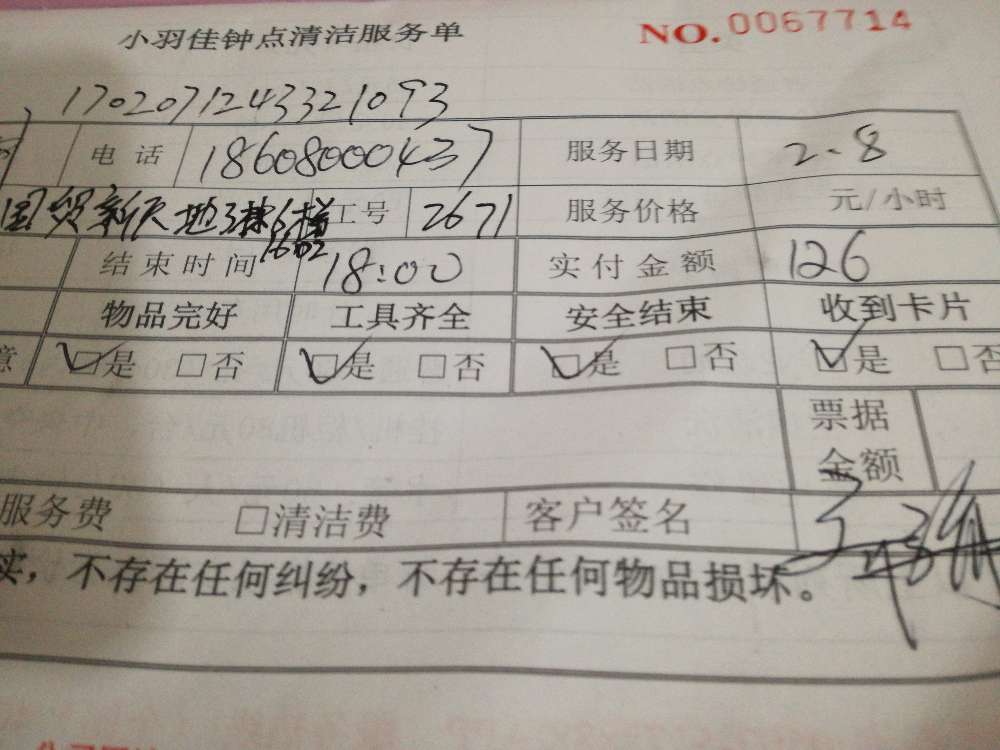 小羽佳钟点清洁服务单 NO.0067714
1702071243321093
电话 18608000437 服务日期 2.8
国贸新天地3栋6楼1602 工号 2671 服务价格 元/小时
结束时间 18:00 实付金额 126
物品完好 工具齐全 安全结束 收到卡片
意 □是 □否 □是 □否 □是 □否 □是 □否
票据
金额
服务费 □清洁费 客户签名
实，不存在任何纠纷，不存在任何物品损坏。